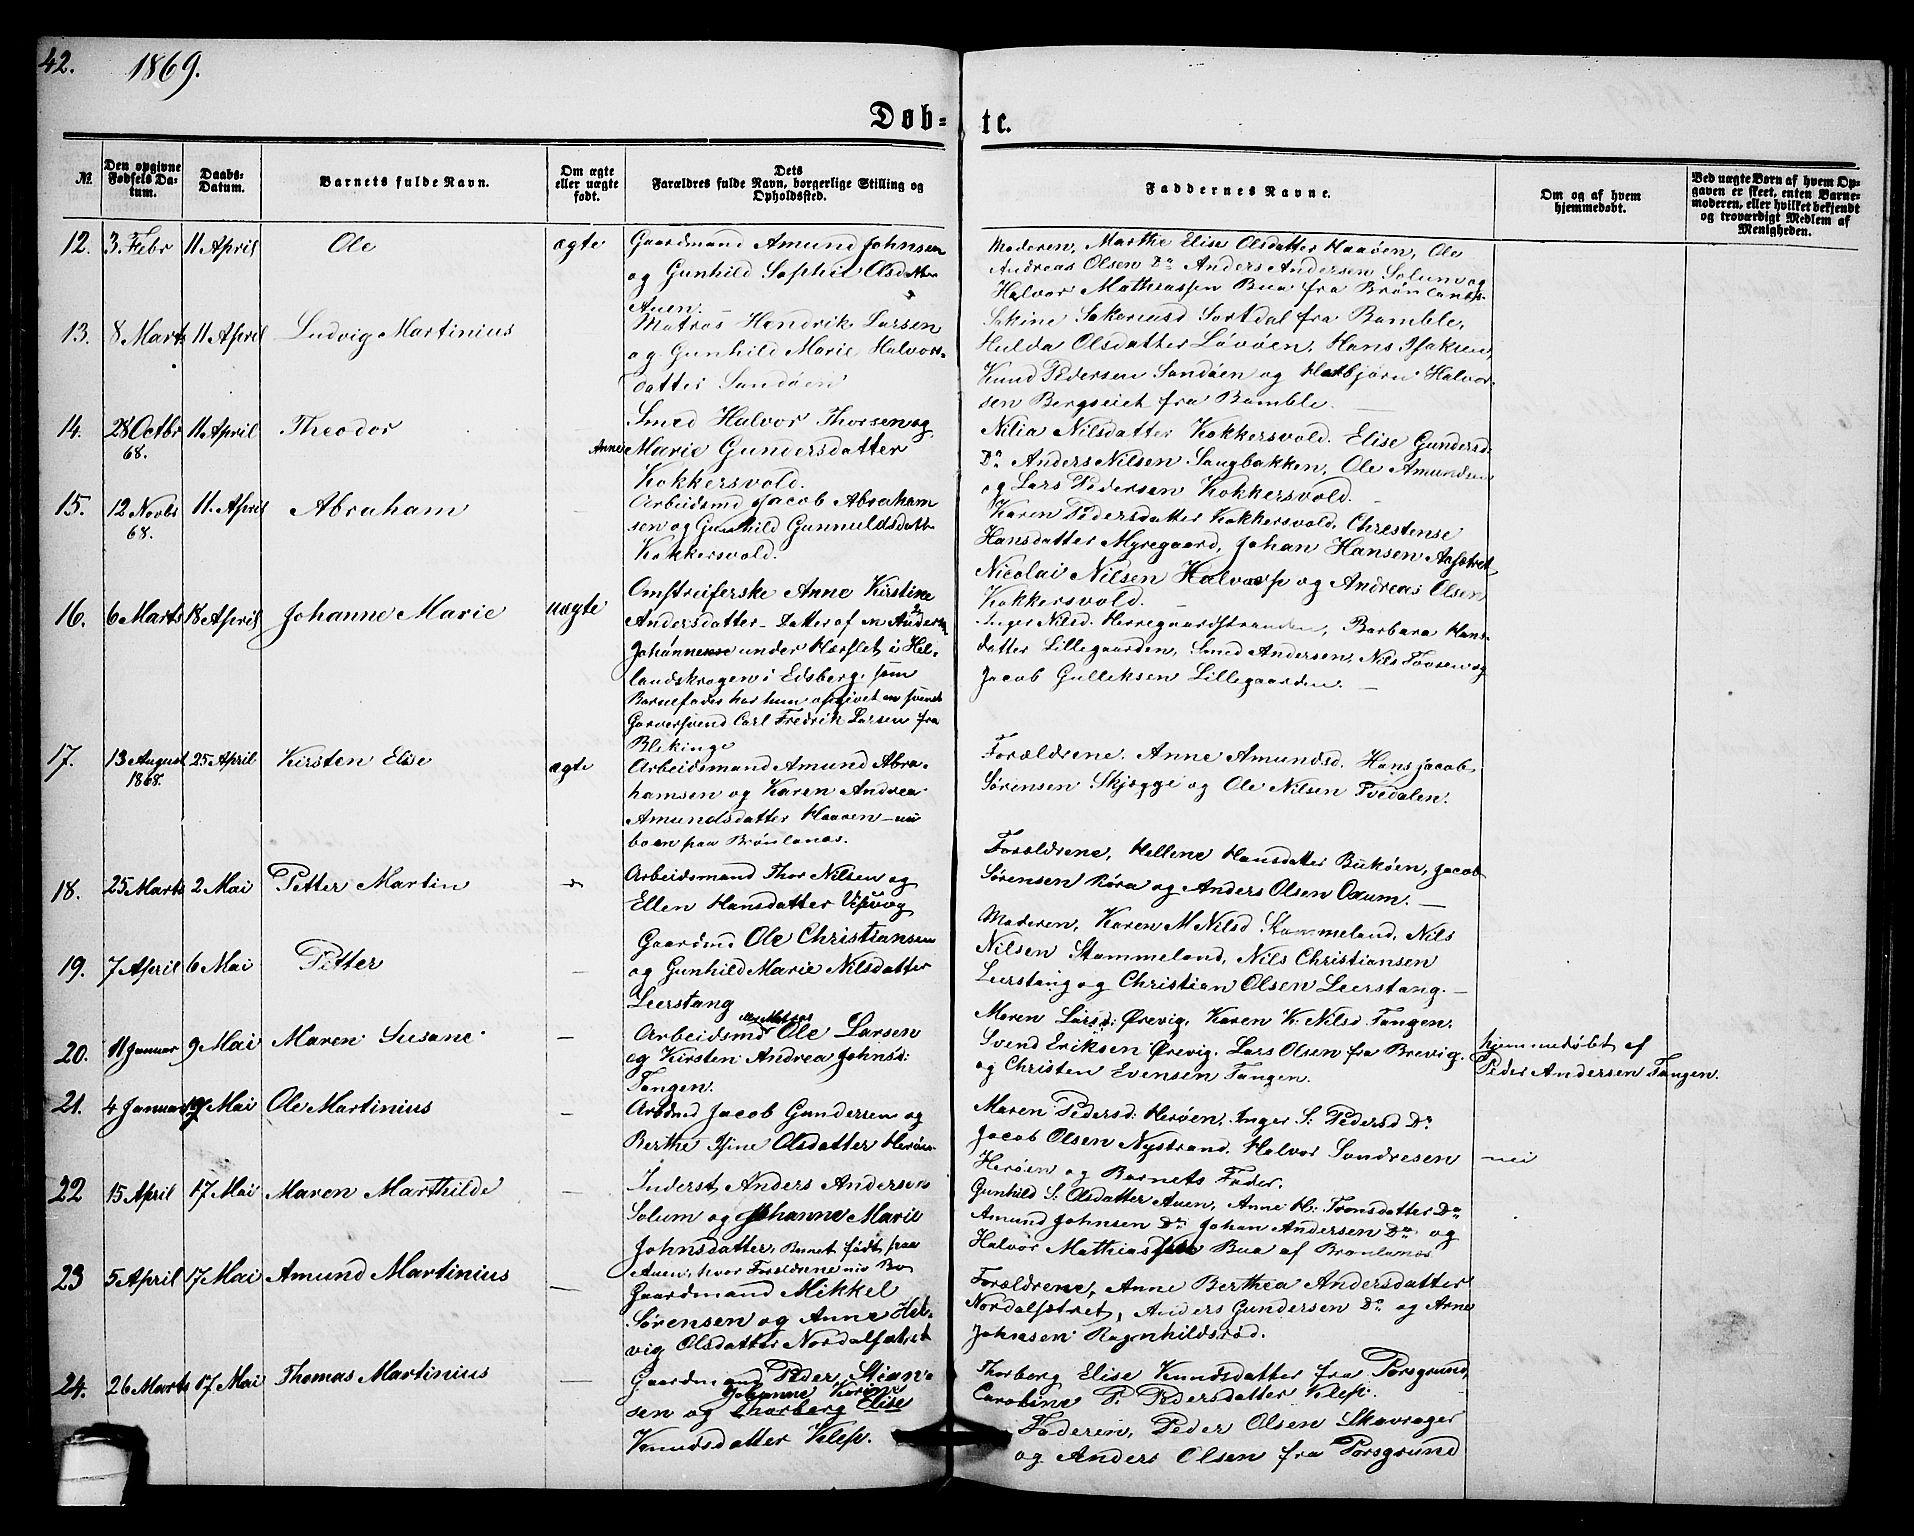 42. 1869.
Døb- te.
№.
Den opgivne Fødsels Da-tum.
Daabs-Datum.
Barnets fulde Navn.
Om ægte eller uægte født.
Dets Forældres fulde Navn, borgerlige Stilling og Opholdssted.
Faddernes Navne.
Om og af hvem hjemmedøbt.
Ved uægte Børn af hvem Op-gaven er skeet, enten Barne-moderen, eller hvilket bekjendt og troværdigt Medlem af Menigheden.
12. 3. Febr 11 April Ole ægte
Gaardmand Amund Johnsen
og Gunhild Sophie Olsdatter
Auen.
Moderen, Marthe Elise Olsdatter Haaøen, Ole
Andreas Olsen Do Anders Andersen Solum og
Halvor Mathiassen Bua fra Brønlanæs.
13. 8 Marts 11 April Ludvig Martinius
Matros Hendrik Larsen
og Gunhild Marie Halvors-
datter Sandøen
Hulda Olsdatter Løvøen, Hans Isaksen,
Knud Pedersen Sandøen og Halbjørn Halvor-
sen Bergseiet fra Bamble.
14. 28 Octbr 68. 11 April Theodor
Smed Halvor Thorsen og
Anne Marie Gundersdatter
Kokkersvold.
Nilia Nilsdatter Kokkersvold. Elise Gundersd.
Do Anders Nilsen Saugbakken, Ole Amundsen
og Lars Pedersen Kokkersvold.
15. 12 Novbr 68. 11 April Abraham
Arbeidsmd Jacob Abraham
sen og Gunhild Gunnuldsdatt.
Kokkersvold.
Karen Pedersdatter Kokkersvold, Christense
Hansdatter Myregaard, Johan Hansen
Nicolai Nilsen Halvarp og Andreas Olsen
Kokkersvold.
16. 6 Marts 18 April Johanne Marie uægte
Omstreiferske Anne Kirstine
Andersdatter – Datter af Anders
under Hærslet i Hel-
landskrogen i Edsberg, som
Barnefader har hun opgivet
Garversvend Carl Fredrik Larsen fra
Blekinge
Inger Nilsd. Herregaardstranden, Barbara Hans-
datter Lillegaarden, Smed Andersen, Nils Tovsen og
Jacob Gulleksen Lillegaarden.
17. 13 August 1868. 25 April Kirsten Elise ægte
Arbeidsmand Amund Abra-
hamsen og Karen Andrea
Amundsdatter Haaøen – nu
boen paa Brønlanæs.
Forældrene. Anne Amundsd. Hans Jacob
Sørensen Skjøgge og Ole Nilsen Tvedalen.
18. 25 Marts 2 Mai Petter Martin
Arbeidsmand Thor Nilsen og
Ellen Hansdatter Vissvog
Forældrene, Hellene Hansdatter Bukøen, Jacob
Sørensen Røra og Anders Olsen Oxum.
19. 7 April 6 Mai Petter –
Gaardmd Ole Christiansen
og Gunhild Marie Nilsdatter
Leerstang
Moderen, Karen M Nilsd Stammeland, Nils
Nilsen Stammeland, Nils Christiansen
Leerstang og Christian Olsen Leerstang.
20. 11 Januar 9 Mai Maren Susane –
Arbeidsmd Ole Larsen
og Kirsten Andrea Johnsd:
Tangen.
Maren Larsd: Ørevig, Karen K: Nilsd Tangen.
Svend Eriksen Ørevig. Lars Olsen fra Brevig.
og Christen Evensen Tangen.
hjemmedøbt af
Peder Andersen Tangen.
21. 4 Januar 9 Mai Ole Martinius –
Arbmd Jacob Gundersen og
Berthe Isine Olsdatter Herøen
Maren Pedersd: Herøen, Inger S. Pedersd Do
Jacob Olsen Nystrand, Halvor Sondresen
Herøen og Barnets Fader.
– nei
22 15 April 17 Mai Maren Marthilde –
Inderst Anders Andersen
Solum og Johanne Marie
Johnsdatter. Barnet født paa
Auen, hvor Forældrene nu Bo
Gunhild S: Olsdatter Auen, Anne M: Tronsdatter Do
Amund Johnsen Do Johan Andersen Do og
Halvor Mathiassen Bua af Brønlanæs
23 5 April 17 Mai Amund Martinius –
Gaardmand Mikkel
Sørensen og Anne Hel-
vig Olsdatter Nordalsætret
Forældrene, Anne Berthea Andersdatter
Nordalsætret, Anders Gundersen Do og Arne
Johnsen Ragnhildsrød.
24. 26 Marts 17 Mai Thomas Martinius –
Gaardmand Peder Stian-
sen og Johanne Karine Thorberg Elise
Knudsdatter Klep.
Thorborg Elise Knudsdatter fra Porsgrund,
Caroline P. Pedersdatter Klep.
Faderen, Peder Olsen Skavrager
og Anders Olsen fra Porsgrund